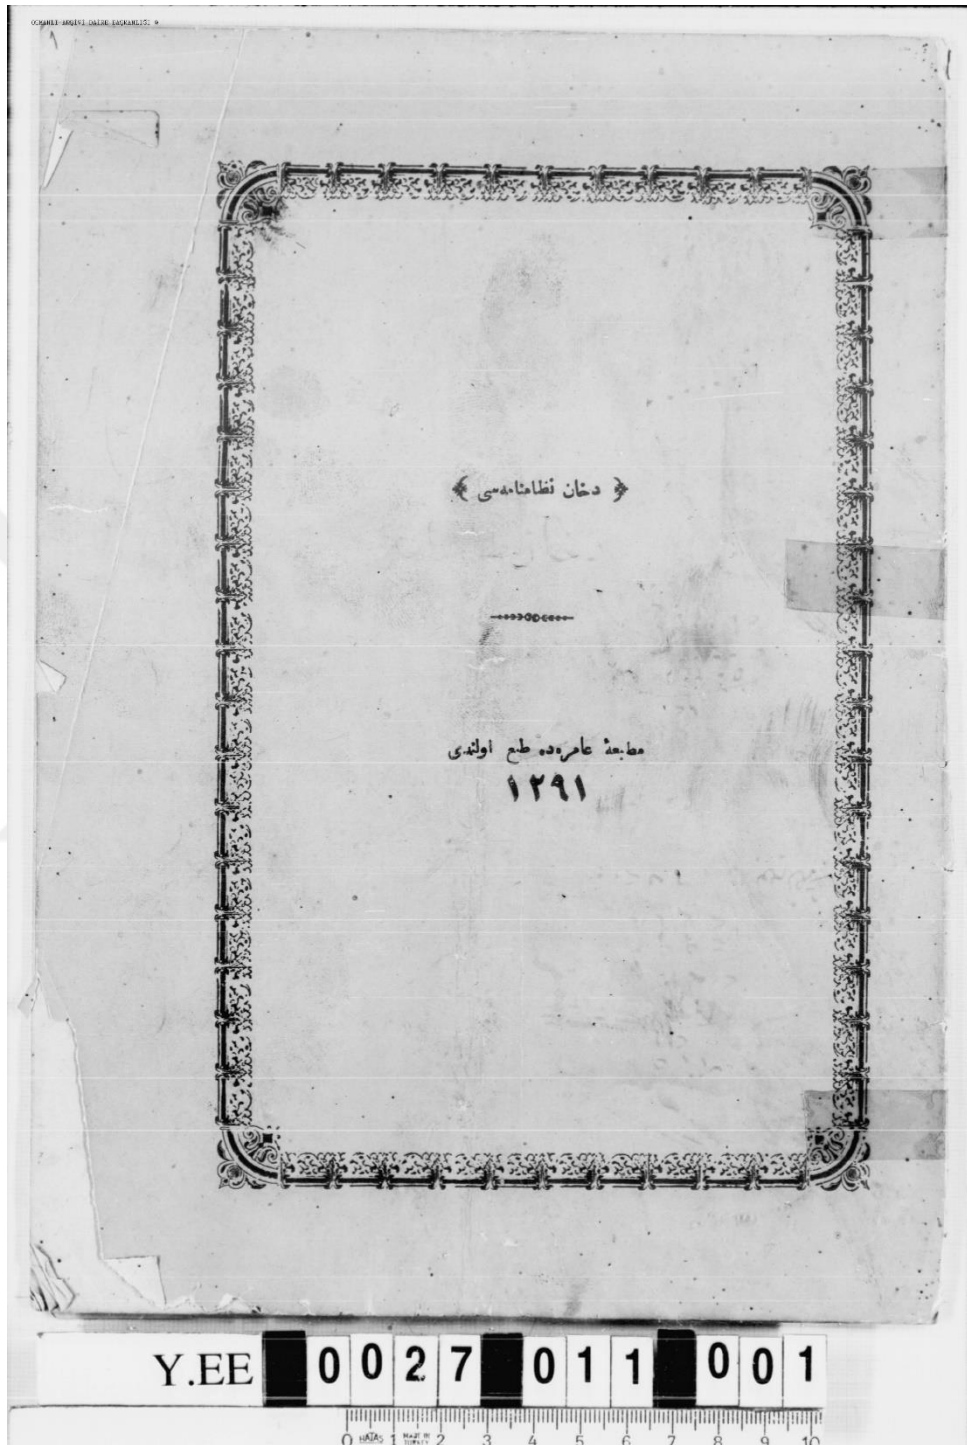 OSMANLI ARŞİVİ DAİRE BAŞKANLIĞI
﴿ دخان نظامنامه‌سی ﴾
مطبعهٔ عامره‌ده طبع اولندی
١٢٩١
Y.EE 0027 011 001
0 HATAS 1 MADE IN TURKEY 2 3 4 5 6 7 8 9 10